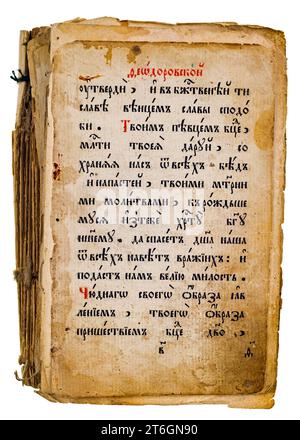 Ѳеѡдоровской
оутверди, и въ бж҃твенѣй ти
славѣ вѣнцемъ славы сподо
би. Твоимъ пѣвцемъ бц҃е,
мл҃ти твоея даруй, со
храняя насъ ѿ всѣхъ бѣдъ
и напастей, твоими мт҃рни
ми молитвами, къ рождьше
муся изъ тебе хр҃ту бг҃у
нашему. да спасетъ дш҃а наша
ѿ всѣхъ навѣтъ вражіихъ, и
подастъ намъ велію милость.
Чюднагѡ своегѡ ѻбраза ꙗв
леніемъ, твоегѡ ѻбраза
пришествіемъ бц҃е дв҃о,
alamy - 2T6GN90